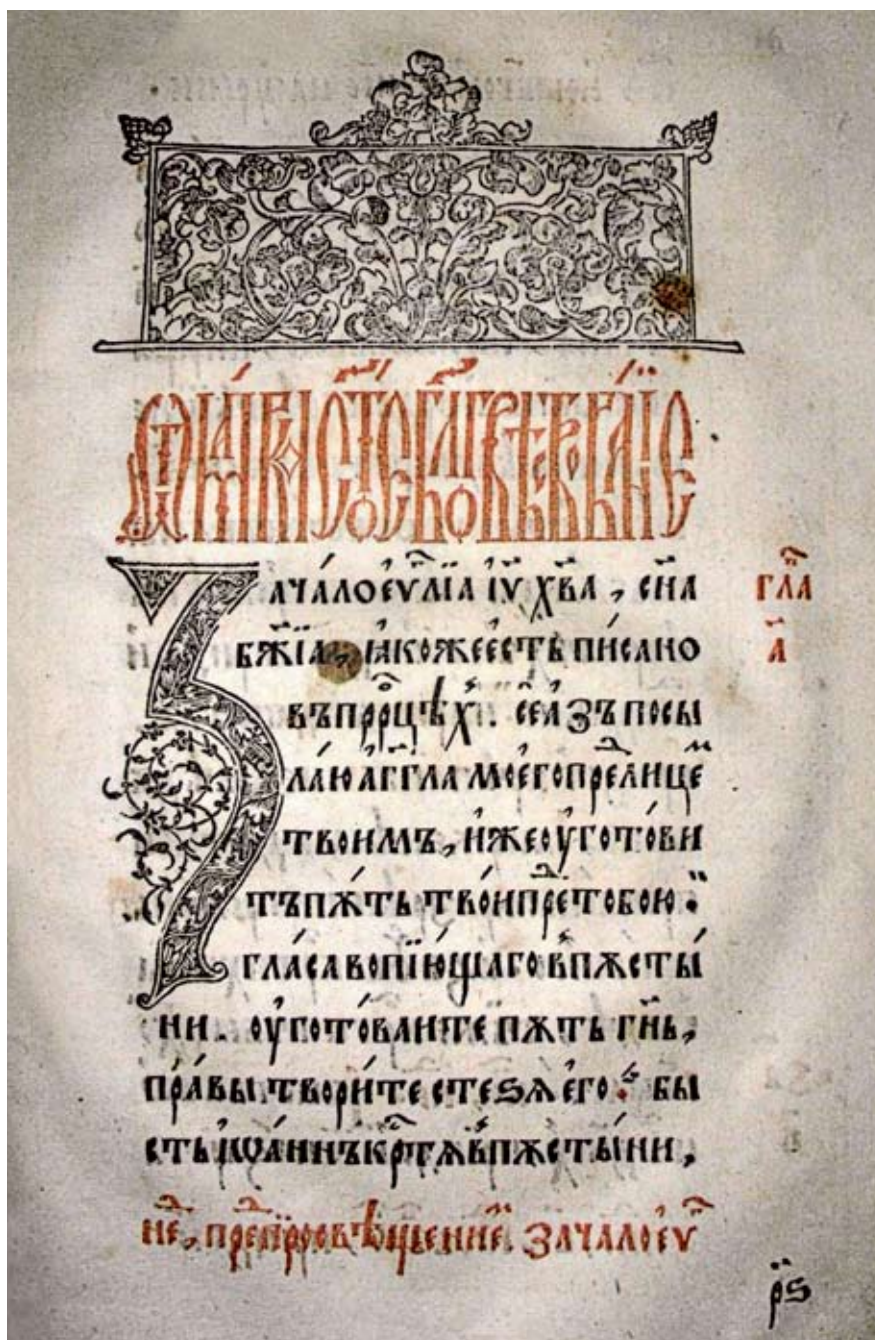 Ѿ МА́РКА СТ҃ОЕ БЛ҃ГОВѢСТВОВАНЇЕ
Зача́ло єѵⷢ҇лїа і҆ѵ х҃ва, сн҃а
гл҃а
бж҃їа, ꙗ҆коже є҆сть пи́сано
а҃
въ пррⷪ҇цѣхⸯ. се а҆зъ посы
лаю а҆́гг҃ла моего преⷣ лицеⷨ
твоимъ, иже оу҆гото́ви
тъ пѫ́ть тво́и преⷣ тобою.
гла́са вопїю́щаго в пѫсты́
ни. оу҆гото́ваите пѫ́ть гн҃ь,
пра́вы твори́те стеѕѧ є҆го̀. бы
сть і҆ѡа́ннъ крⷭ҇тѧ в пѫсты́ни,
неⷣ, преⷣ просвѣщьениеⷨ. зача́ло єѵⷢ҇
р҃ѕ